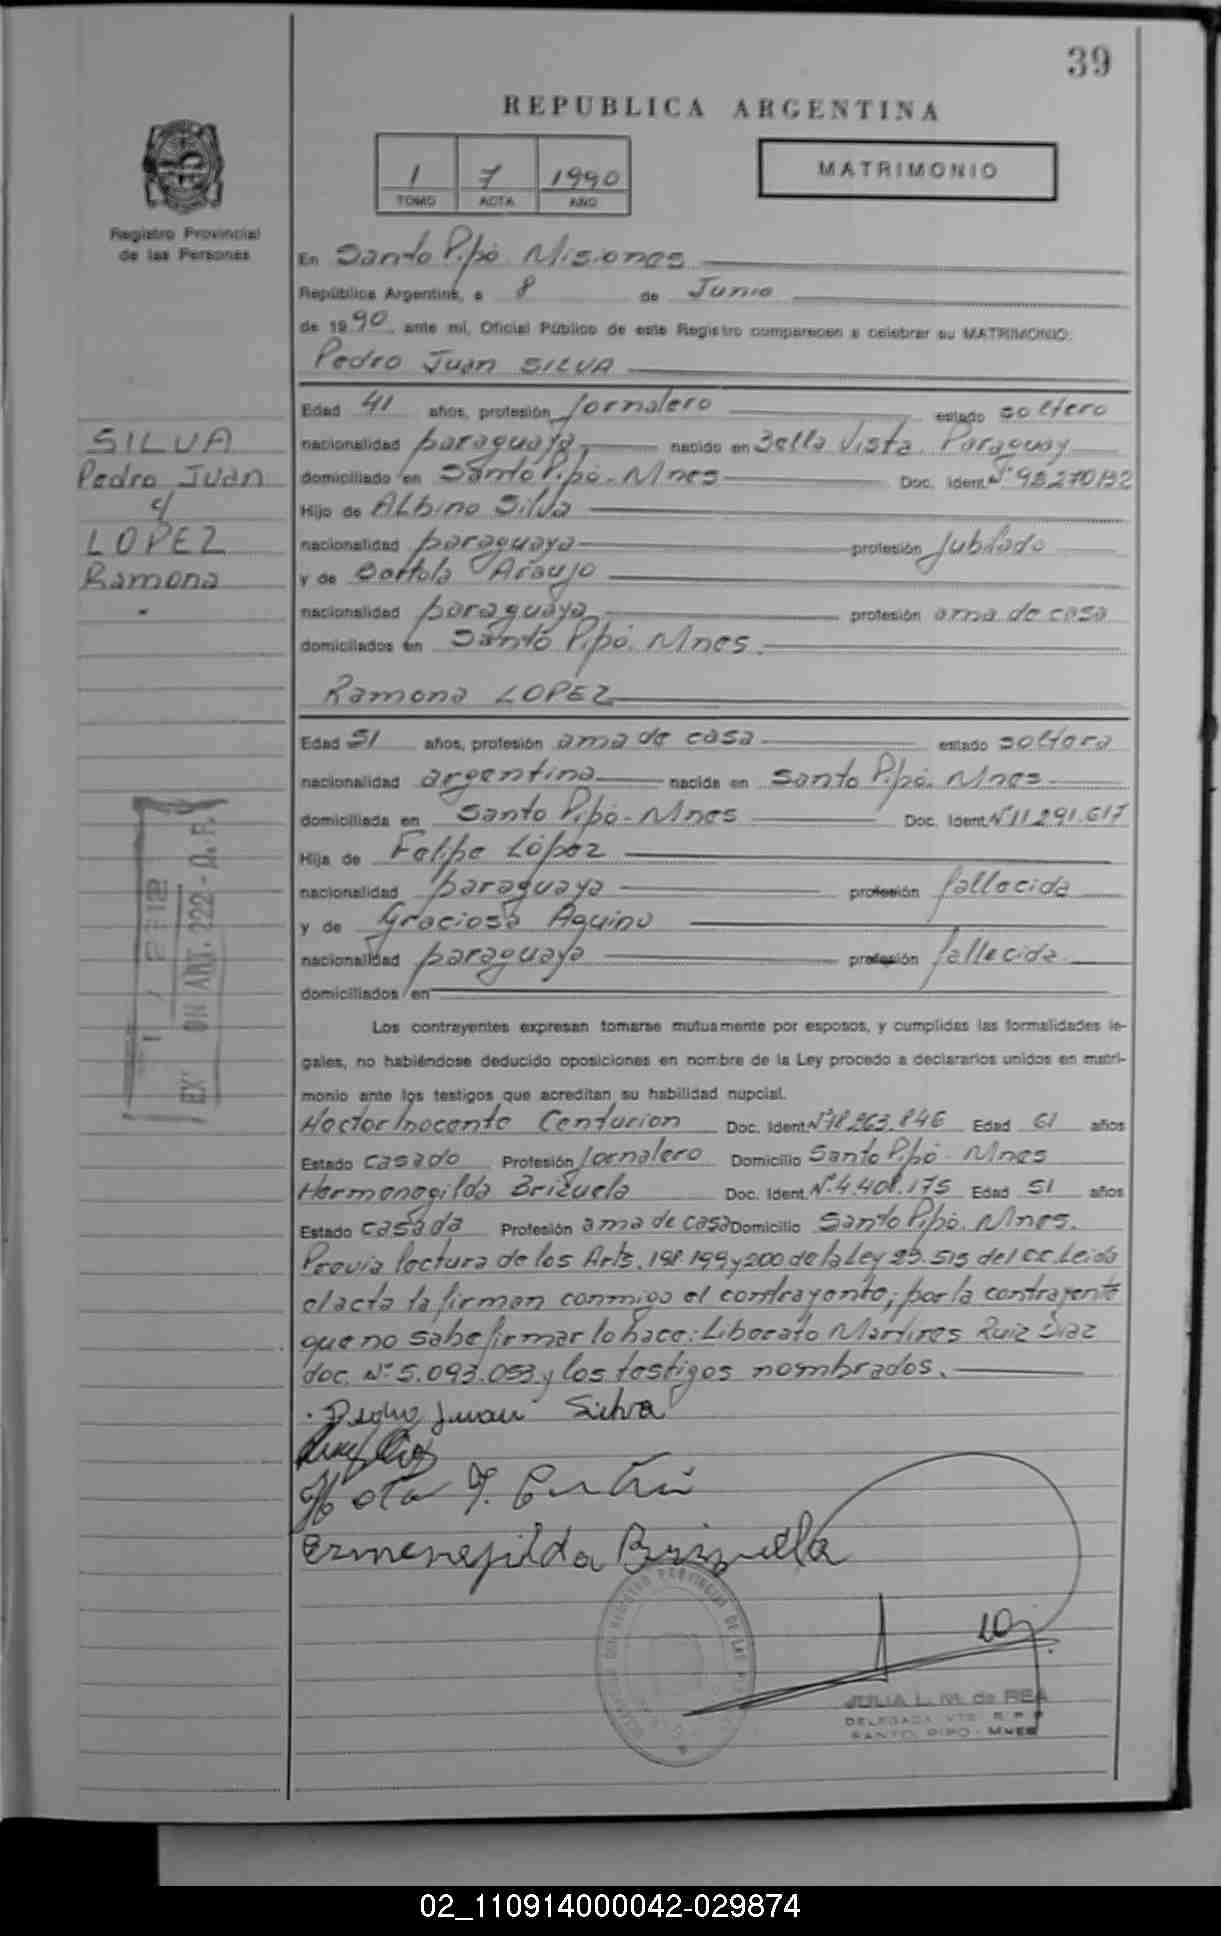 39
REPUBLICA ARGENTINA
1 7 1990
TOMO ACTA AÑO
MATRIMONIO
Registro Provincial
de las Personas
En Santo Pipó Misiones
República Argentina, a 8 de Junio
de 1990, ante mi, Oficial Público de este Registro comparecen a celebrar su MATRIMONIO:
Pedro Juan SILVA
SILVA
Pedro Juan
c/
LOPEZ
Ramona
Edad 41 años, profesión Jornalero estado soltero
nacionalidad paraguaya, nacido en Bella Vista. Paraguay
domiciliado en Santo Pipó. Mnes Doc. Ident. Nº 95.270132
Hijo de Albino Silva
nacionalidad paraguaya profesión Jubilado
y de Bartola Araujo
nacionalidad paraguaya profesión ama de casa
domiciliados en Santo Pipó. Mnes.
Ramona LOPEZ
Edad 51 años, profesión ama de casa estado soltera
nacionalidad argentina nacida en Santo Pipó. Mnes
domiciliada en Santo Pipó - Mnes Doc. Ident. Nº 11.291.617
Hija de Felipe López
nacionalidad paraguaya profesión fallecida
y de Graciosa Aquino
nacionalidad paraguaya profesión fallecida
domiciliados en
ON ART. 222
Los contrayentes expresan tomarse mutuamente por esposos, y cumplidas las formalidades le-
gales, no habiéndose deducido oposiciones en nombre de la Ley procedo a declararlos unidos en matri-
monio ante los testigos que acreditan su habilidad nupcial.
Hector Inocente Centurion Doc. Ident. Nº 18.263.846 Edad 61 años
Estado casado Profesión Jornalero Domicilio Santo Pipó - Mnes
Hermenegilda Brizuela Doc. Ident. Nº 4.408.175 Edad 51 años
Estado casada Profesión ama de casa Domicilio Santo Pipó. Mnes.
Previa lectura de los Arts. 198.199 y 200 de la Ley 23.515 del CC. Leida
el acta la firman conmigo el contrayente; por la contrayente
que no sabe firmar lo hace: Liberato Martires Ruiz Diaz
doc. Nº 5.093.053 y los testigos nombrados.
Pedro Juan Silva
Ermenegilda Brizuela
JULIA L. M. de REA
DELEGADA
SANTO PIPO - MNES
02_110914000042-029874